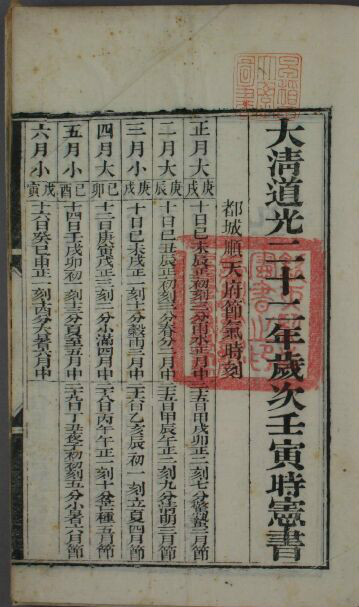 大清道光二十二年歲次壬寅時憲書
都城順天府節氣時刻
正月大 庚戌 十日己未辰正初刻三分雨水正月中 二十五日甲戌卯正二刻七分驚蟄二月節
二月大 庚辰 十日己丑辰正初刻 分春分二月中 二十五日甲辰午正二刻九分清明三月節
三月小 庚戌 十日己未戌正一刻 分穀雨三月中 二十六日乙亥辰初一刻 立夏四月節
四月大 己卯 十二日庚寅戌正三刻三分小滿四月中 二十八日丙午午正二刻十 分芒種五月節
五月小 己酉 十四日壬戌卯初一刻三分夏至五月中 二十九日丁丑夜子初初刻五分小暑六月節
六月小 戊寅 十六日癸巳申正一刻十四分大暑六月中